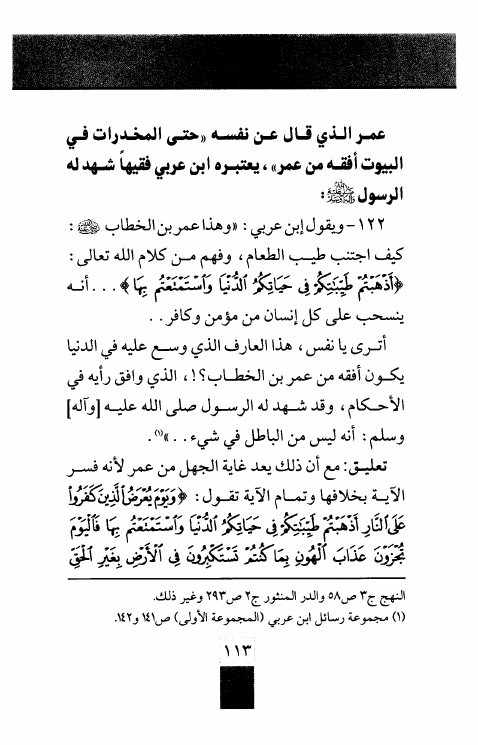 عمر الذي قال عن نفسه «حتى المخدرات في
البيوت أفقه من عمر»، يعتبره ابن عربي فقيهاً شهد له
الرسول ﷺ:
١٢٢- ويقول إبن عربي: «وهذا عمر بن الخطاب :
كيف اجتنب طيب الطعام، وفهم من كلام الله تعالى:
﴿أَذْهَبْتُمْ طَيِّبَاتِكُمْ فِي حَيَاتِكُمُ الدُّنْيَا وَاسْتَمْتَعْتُمْ بِهَا﴾... أنه
ينسحب على كل إنسان من مؤمن وكافر..
أترى يا نفس، هذا العارف الذي وسع عليه في الدنيا
يكون أفقه من عمر بن الخطاب؟!، الذي وافق رأيه في
الأحكام، وقد شهد له الرسول صلى الله عليه [وآله]
وسلم: أنه ليس من الباطل في شيء..»(١).
تعليق: مع أن ذلك يعد غاية الجهل من عمر لأنه فسر
الآية بخلافها وتمام الآية تقول: ﴿وَيَوْمَ يُعْرَضُ الَّذِينَ كَفَرُوا
عَلَى النَّارِ أَذْهَبْتُمْ طَيِّبَاتِكُمْ فِي حَيَاتِكُمُ الدُّنْيَا وَاسْتَمْتَعْتُمْ بِهَا فَالْيَوْمَ
تُجْزَوْنَ عَذَابَ الْهُونِ بِمَا كُنْتُمْ تَسْتَكْبِرُونَ فِي الْأَرْضِ بِغَيْرِ الْحَقِّ
النهج ج٣ ص٥٨ والدر المنثور ج٢ ص٢٩٣ وغير ذلك.
(١) مجموعة رسائل ابن عربي (المجموعة الأولى) ص١٤١ و١٤٢.
١١٣